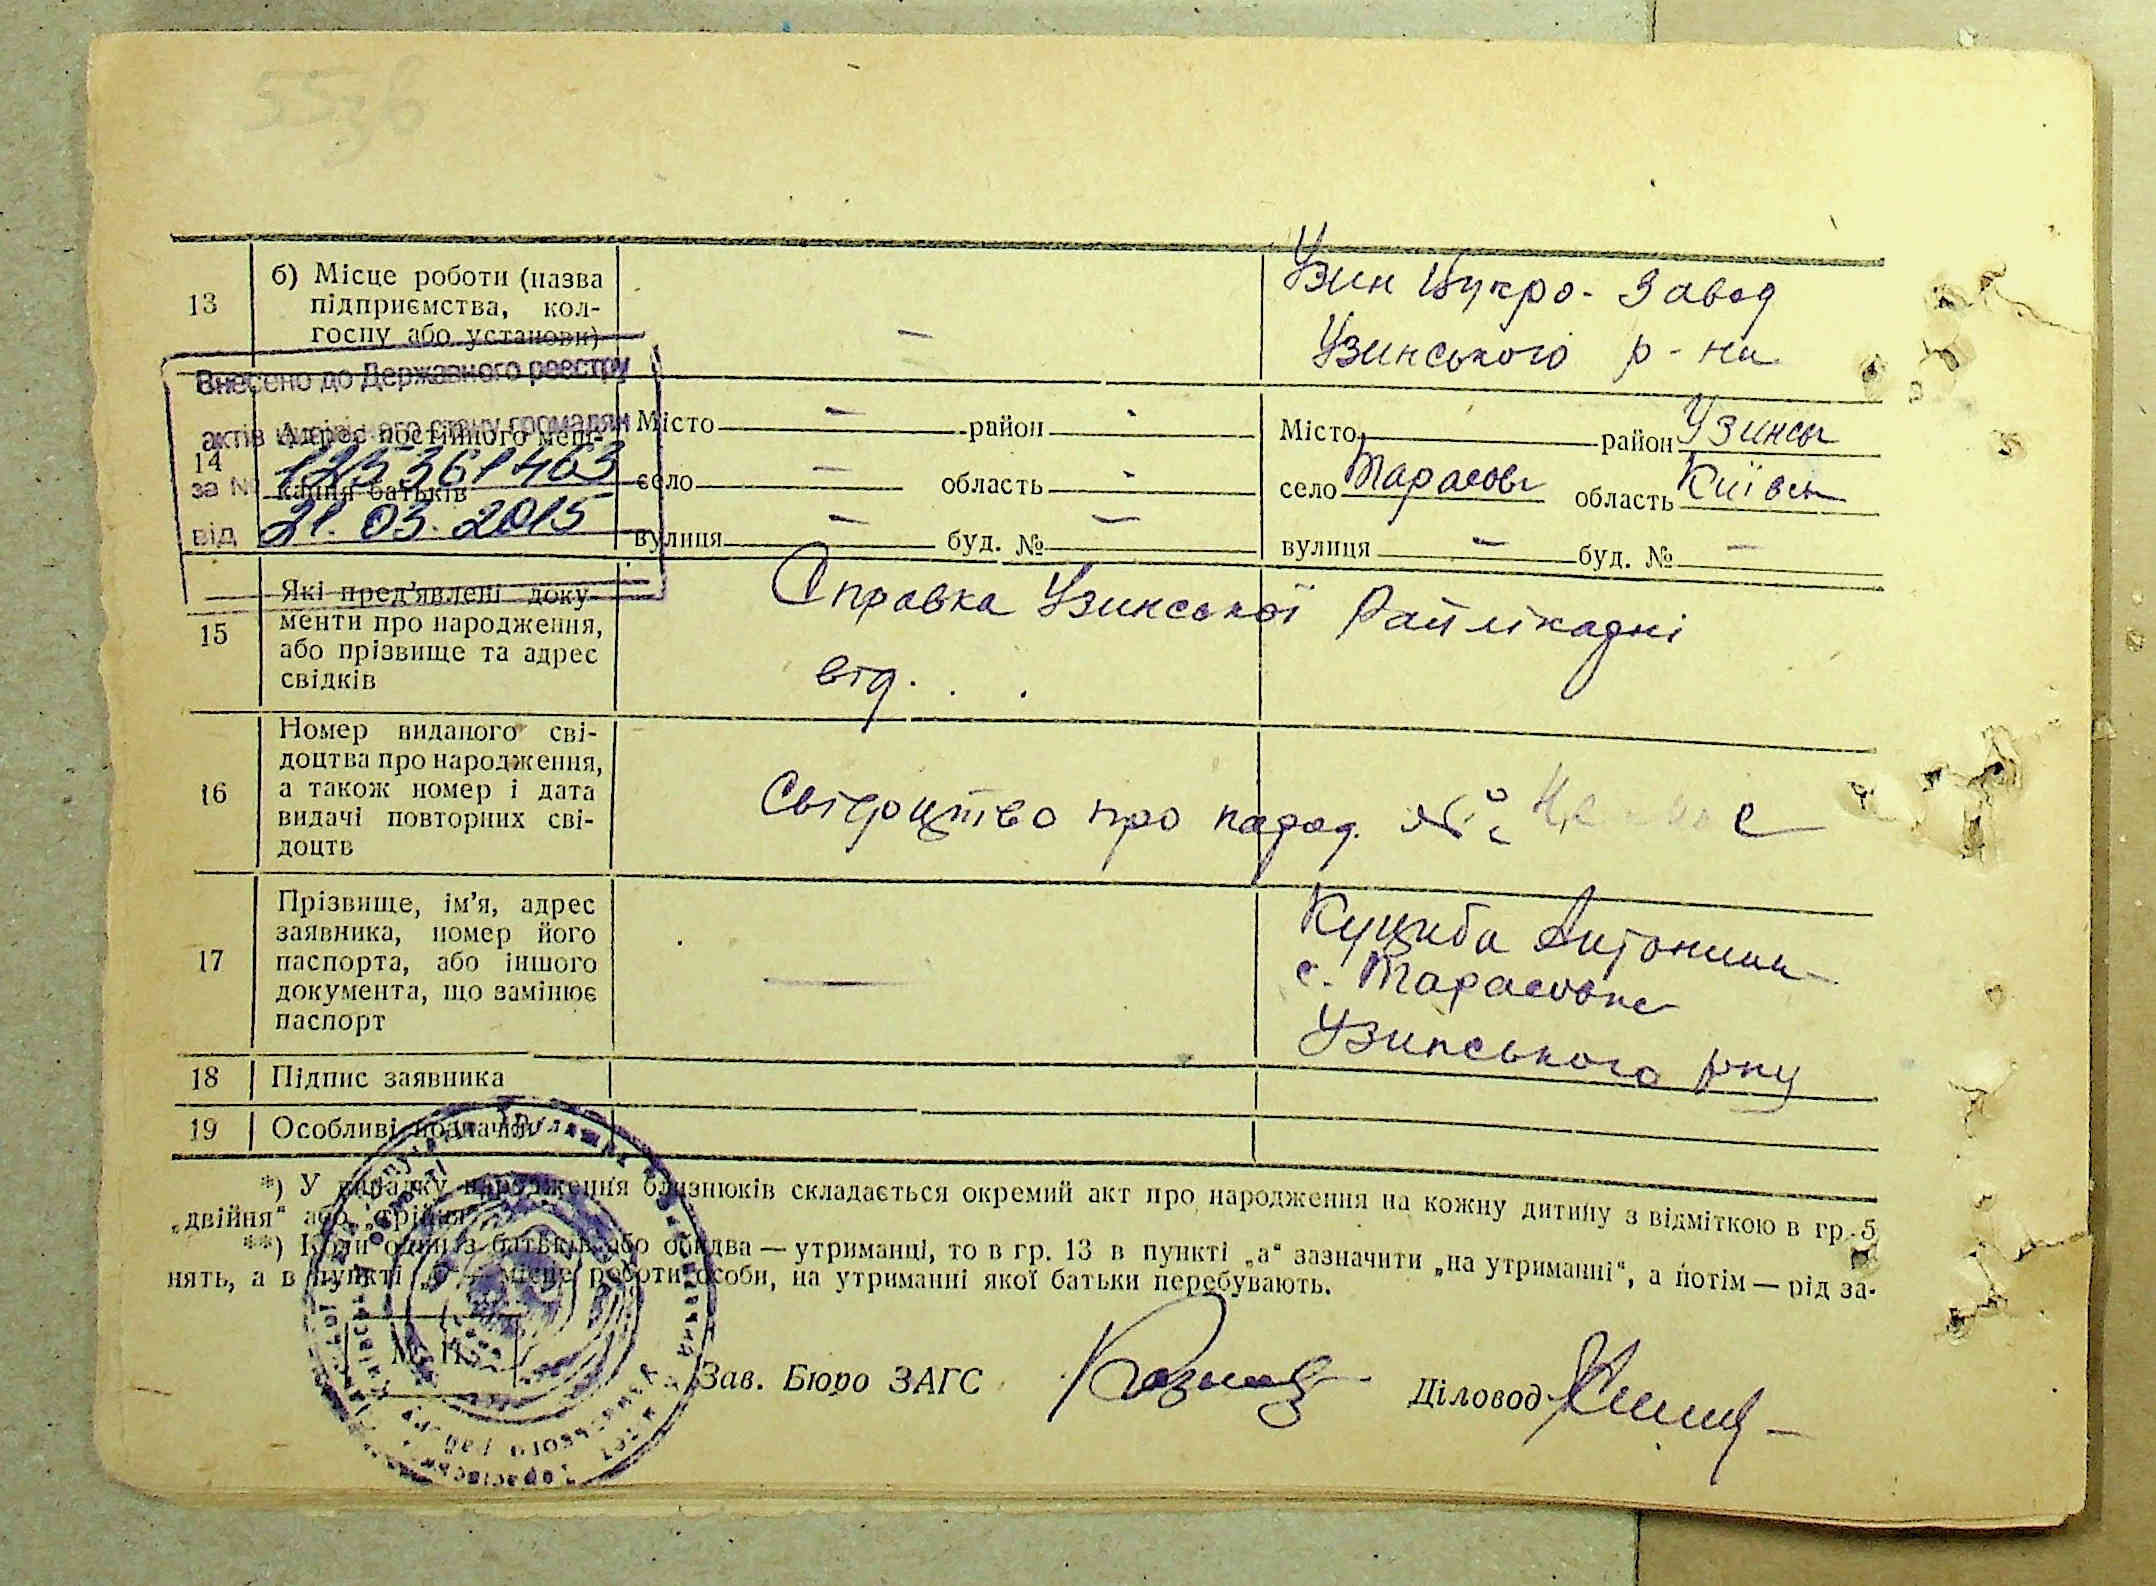 5536
13
б) Місце роботи (назва
підприємства, кол-
госпу або установи)
—
Узин Цукро-завод
Узинського р-на
Внесено до Державного реєстру
актів цивільного стану громадян
за № 125361463
від 21.03.2015
14
Адрес постійного меш-
кання батьків
Місто — район -
село — область -
вулиця — буд. № —
Місто район Узинськ
село Тарасовк область Київськ
вулиця — буд. № —
15
Які пред’явлені доку-
менти про народження,
або прізвище та адрес
свідків
Справка Узинської Райлікарні
від. . .
16
Номер виданого сві-
доцтва про народження,
а також номер і дата
видачі повторних сві-
доцтв
Свідоцтво про народ. №
17
Прізвище, ім’я, адрес
заявника, номер його
паспорта, або іншого
документа, що замінює
паспорт
—
Антонина
с. Тарасовка
Узинського р-ну
18
Підпис заявника
19
Особливі позначки
*) У випадку народження близнюків складається окремий акт про народження на кожну дитину з відміткою в гр. 5
„двійня“ або „трійня“.
**) Коли один з батьків або обидва — утриманці, то в гр. 13 в пункті „а“ зазначити „на утриманні“, а потім — рід за-
нять, а в пункті „б“ — місце роботи особи, на утриманні якої батьки перебувають.
М. П.
Зав. Бюро ЗАГС
Діловод